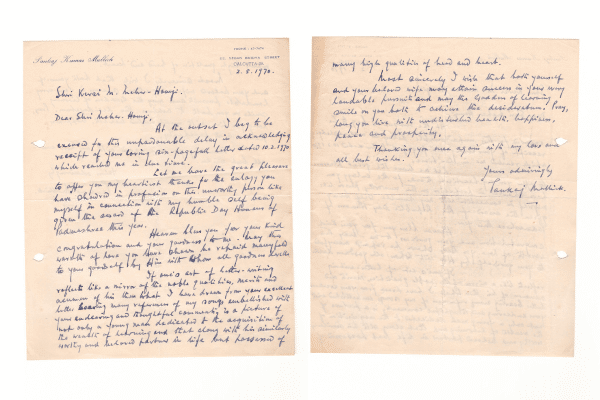 Pankaj Kumar Mullick
CALCUTTA
2.5.1970.
Shri Kersi M. Meher-Homji.
Dear Shri Meher-Homji,
At the outset I beg to be
excused for this unpardonable delay in acknowledging
receipt of your loving six-pageful letter dated 10.2.1970
which reached me in due time.
Let me have the great pleasure
to offer you my heartiest thanks for the eulogy you
have showered in profusion on this unworthy person like
myself in connection with my humble self being
given the award of the Republic Day Honours of
Padmashree this year.
Heaven bless you for your kind
congratulation and your goodness to me. May this
warmth of love you have shown be repaid manyfold
to your goodself by Him with whom all goodness dwells
If one's art of letter-writing
reflects like a mirror of the noble qualities, merits and
of his then what I have drawn from your excellent
letter bearing many references of my songs embellished with
your endearing and thoughtful comments, is a picture of
not only a young man dedicated to the acquisition of
the wealth of learning and that along with his similarly
worthy and beloved partner in life but possessed of
many high qualities of head and heart.
Most sincerely I wish that both yourself
and your beloved wife may attain success in your very
laudable pursuit and may the Goddess of learning
smile on you both to achieve the desideratum. Pray,
long you live with unblemished health, happiness,
peace and prosperity.
Thanking you once again with my love and
all best wishes.
Yours admiringly
Pankaj Mullick.